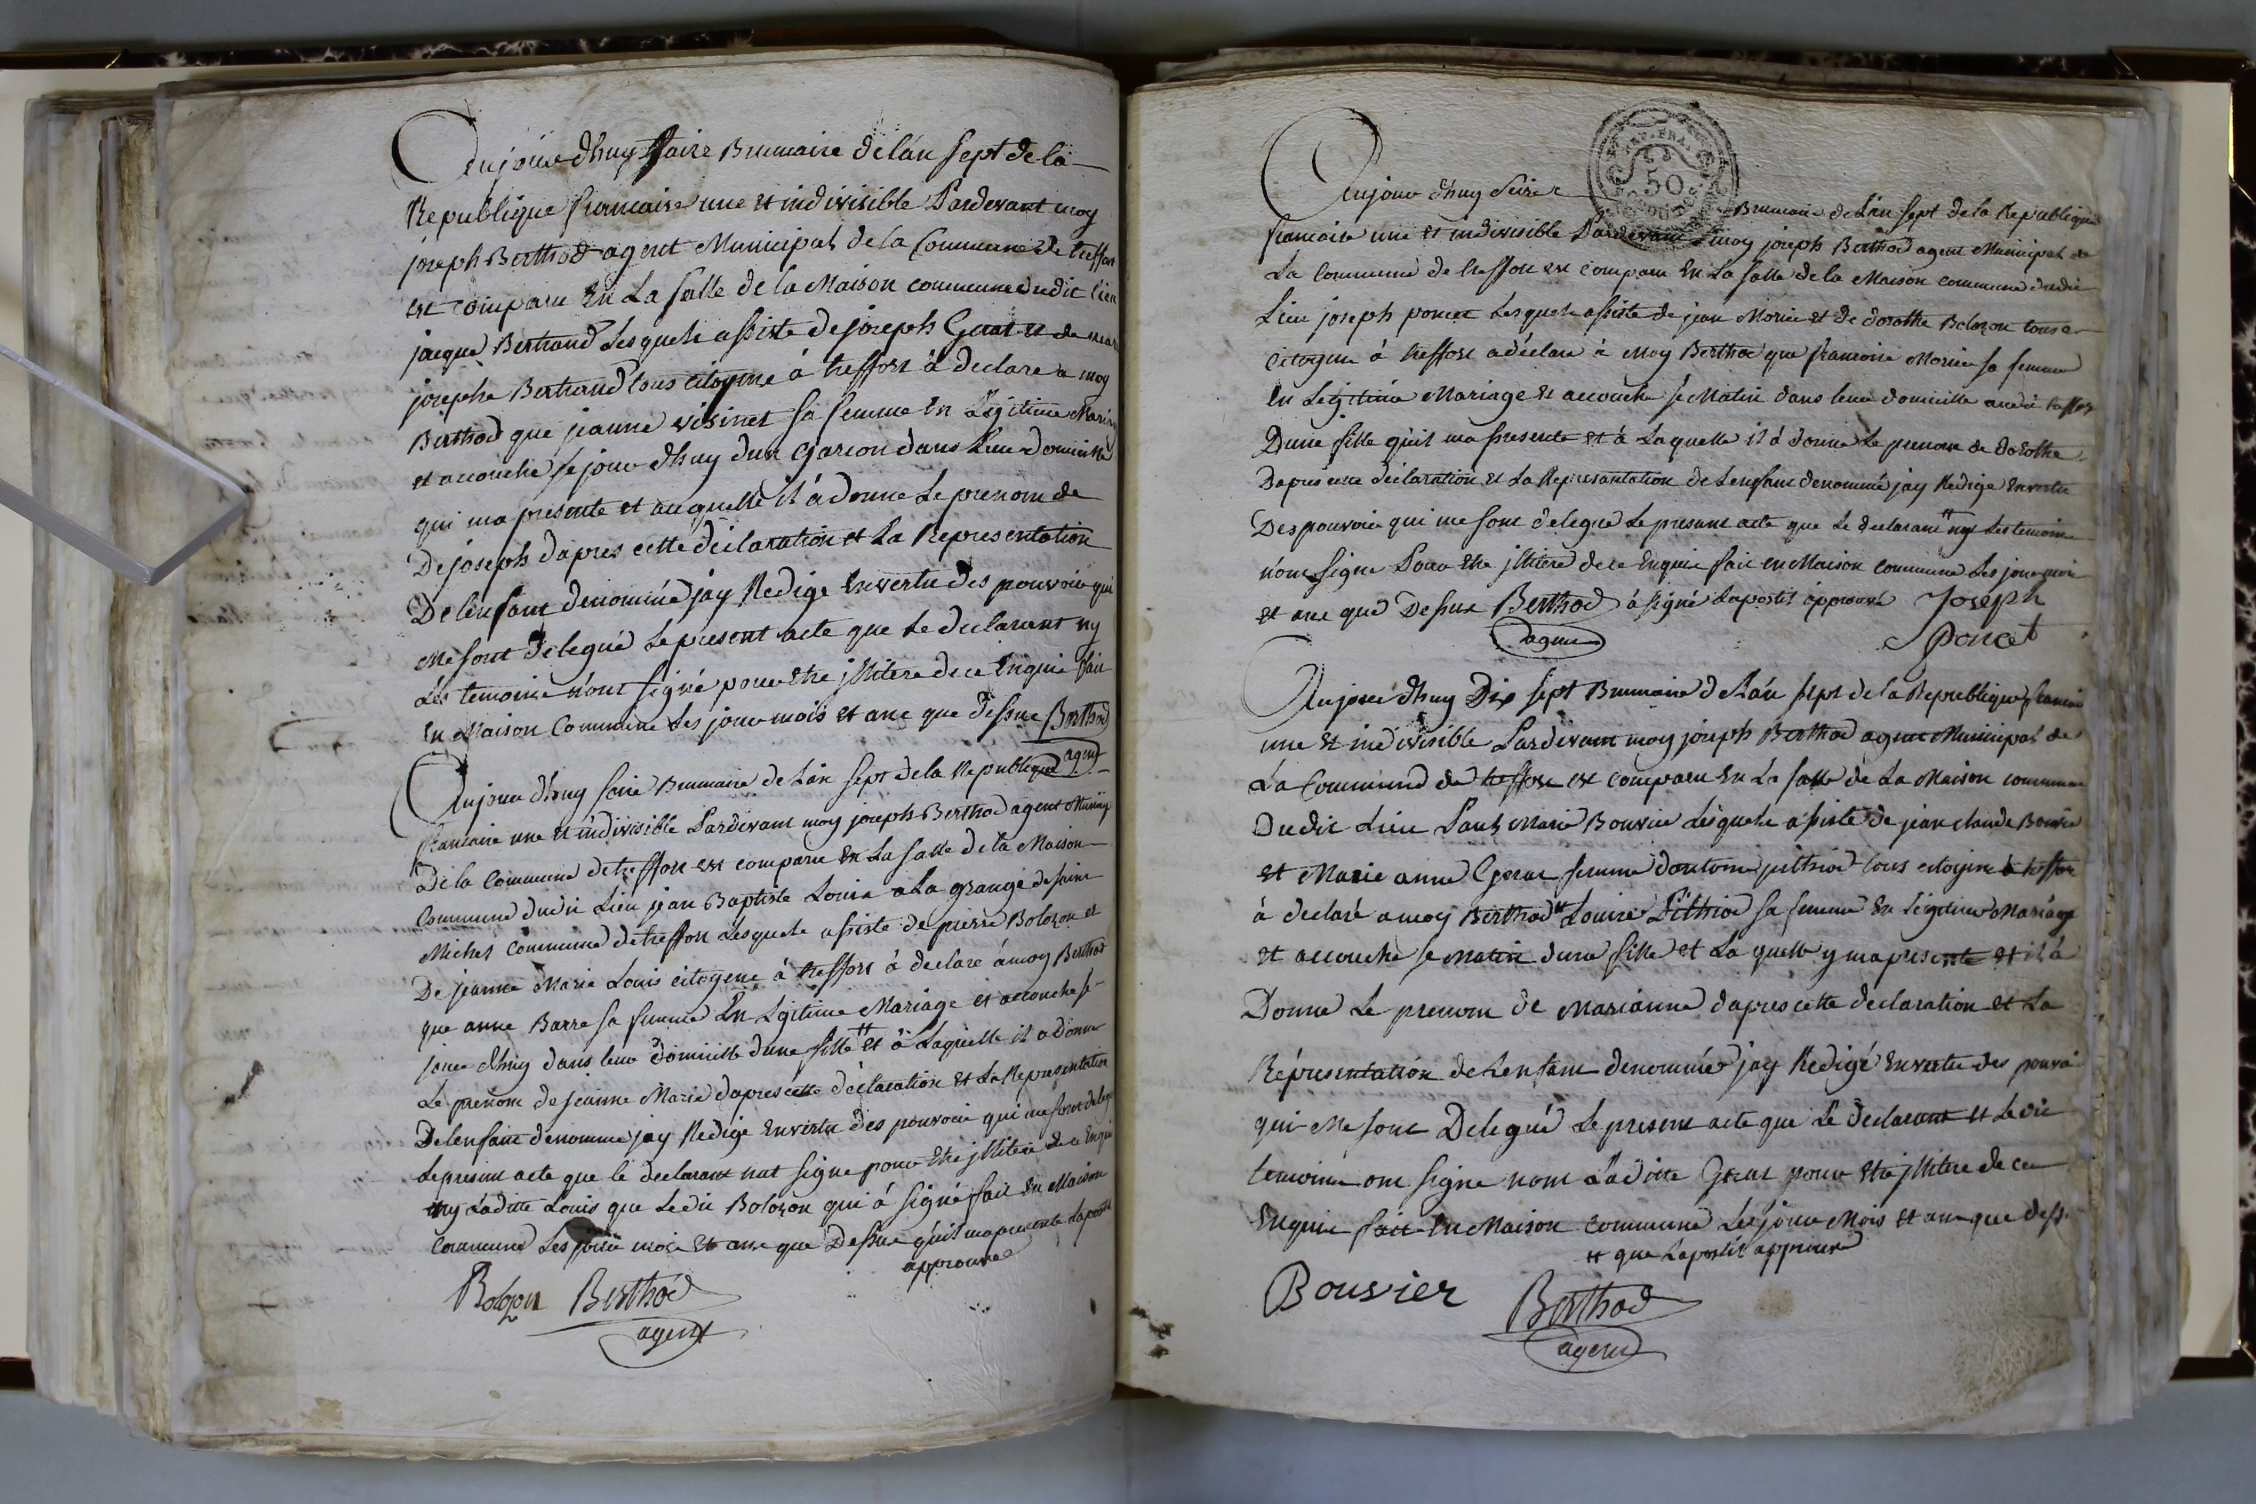 Aujour dhuy Saize Brumaire de lán sept de la
Republique francaise une et indivisible Pardevant moy
joseph Berthod agent Municipal de la Commune de treffort
est comparu En La salle de la Maison commune dudit lieu
jacque Bertrand Lesquels assiste de joseph Guat et de marie
josephe Bertrand tous citoyens á treffort á declare a moy
Berthod que jeanne visinet sa femme En Legitime Mariage
et accouché se jour dhuy dun Garcon dans Leur domicille
qui ma presente et auquelle il á donne Le prenom de
De joseph dapres cette déclaration et La Representation
De lenfant denommé jay Redige En vertu des pouvoir qui
me sont delegué Le present acte que Le declarant ny
Les temoins n'ont signé pour Etre jllitere de ce Enquis fait
En Maison Commune Les jour mois et ans que dessus Berthod
agent
Aujour dhuy saize Brumaire de Lán sept de la Republique
francaise une et indivisible Pardevant moy joseph Berthod agent Municip
de la Commune de treffort est comparu En La salle de la Maison
Commune dudit Lieu jean Baptiste Louis a La grange de saint
Michel commune de treffort Lesquels assiste de pierre Bolozon et
De jeanne Marie Louis citoyens á treffort á declaré á moy Berthod
que anne Barre sa femme En Legitime Mariage et accouche se
jour dhuy dans leur domicille dune fille ++ et á Laquelle il a donne
Le prenom de jeanne Marie dapres cette déclaration et La Representation
De lenfant denomme jay Redige En vertu des pouvoir qui me sont delegue
Le present acte que le declarant nat signe pour Etre jllitere de ce Enquis
ny Ladite Louis que Ledit Bolozon qui á signé fait En Maison
Commune Les jour mois et ans que Dessus quil ma presente Lapostil
approuvé
Bolozon Berthod
agent
REP. FRA.
50
Aujour dhuy Seize Brumaire de Lán sept de la Republique
francaise une et indivisible Pardevant moy joseph Berthod agent Municipal de
La Commune de treffort est comparu En La salle de la Maison commune dudit
Lieu joseph poncet Lesquels assiste de jean Morier et de dorothe Bolozon tous
Citoyens á treffort a déclare á moy Berthod que francoise Morier sa femme
En Légitime Mariage et accouche se Matin dans leur domicille
Dune fille quil ma presente et á Laquelle il á donne Le prenom de dorothe
Dapres cette déclaration et La Representation de Lenfant denommé jay Redige En vertu
Des pouvoir qui me sont delegue Le present acte que Le declarant ++ ny Les temoins
n'ont signe Pour Etre jllitere de ce Enquis fait en Maison commune Les jour mois
et ans que Dessus Berthod á signé Lapostil approuvé Joseph
agent Poncet
Aujour dhuy Dix sept Brumaire de Lán sept de la Republique francais
une et indivisible Pardevant moy joseph Berthod agent Municipal de
La Commune de treffort est comparu En La salle de La Maison commune
Dudit Lieu Paul Marie Bouvier Lesquels assiste de jean claude Bouvier
et Marie anne Gerat femme dantoine pithiod tous citoyens á treffort
á declaré a moy Berthod ++ Louise Pithiod sa femme En Légitime Mariage
et accouche se Matin dune fille et La quelle y ma presente et il á
Donne Le prenom de Marianne dapres cette declaration et La
Représentation de Lenfant denommée jay Redigé En vertu des pouvoi
qui Me sont Delegué Le present acte que Le declarant et Le dit
temoins ont signe nont Ladite Gerat pour Etre jllitere de ce
Enquis fait En Maison commune Les jour Mois et ans que dess
++ que Lapostil approuvé
Bouvier Berthod
agent